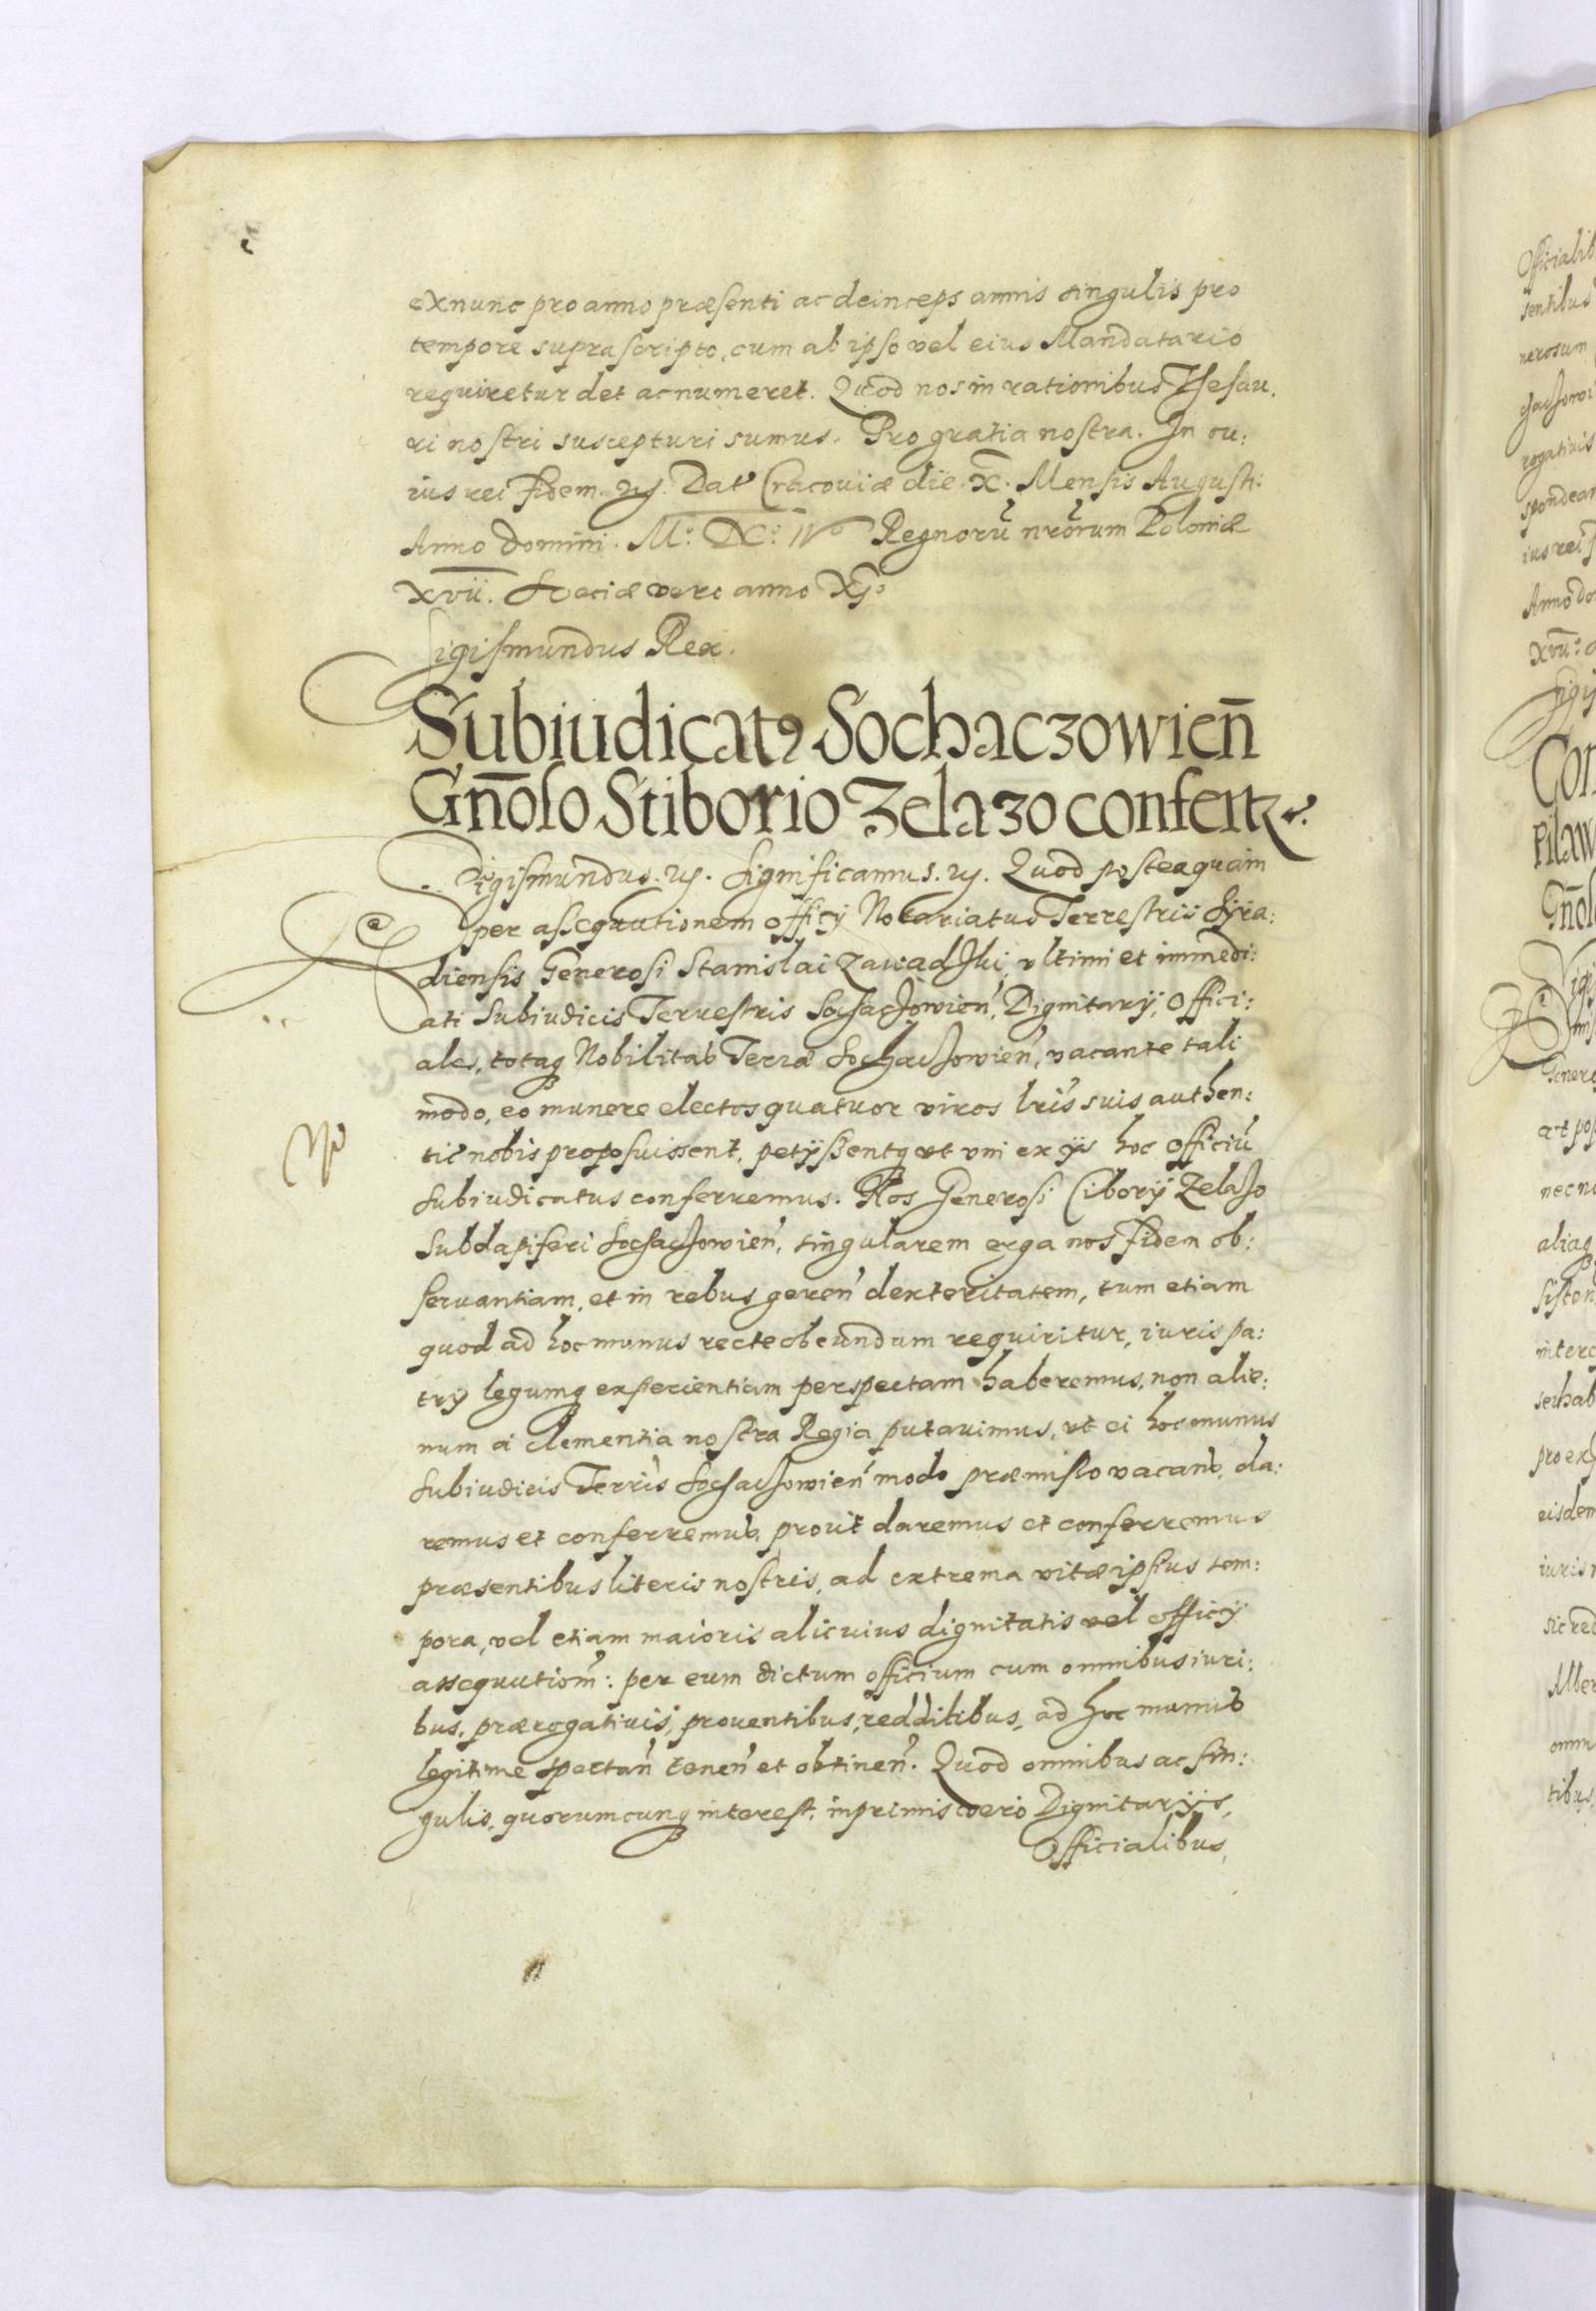 exnunc pro anno præsenti ac deinceps annis singulis pro
tempore suprascripto, cum ab ipso vel eius Mandatario
requiretur det ac numeret. Quod nos in rationibus Thesau.
ri nostri suscepturi sumus. Pro gratia nostra. In cu:
ius rei fidem. Dat Cracoviæ die X. Mensis Augusti:
Anno Domini. Mº: DCº: IVº Regnorũ nrõrum Poloniæ
XVII. Sueciæ vero anno XIº
Sigismundus Rex.
Subiudicatꝰ Sochaczowien̄
Gn̄oso Stiborio Zelazo confertꝛ
Sigismundus. Significamus. Quod posteaquam
per assequutionem officÿ Notariatus Terrestris Syra:
diensis Generosi Stanislai Zawadzki, vltimi et immedi:
ati Subiudicis Terrestris Sochaczowien̄, Dignitarÿ, Offici:
ales, totaq Nobilitas Terræ Sochaczowien̄, vacante tali
modo, eo munere electos quatuor viros lris suis authen:
tic nobis proposuissent, petÿssentq vt vni ex ÿs hoc officiũ
Subiudicatus conferremus. Nos Generosi Ciborÿ Zelazo
Subdapiferi Sochaczowien̄, singularem erga nos fidem ob:
seruantiam, et in rebus geren̄ dexteritatem, tum etiam
quod ad hoc munus recte obeundum requiritur, iuris pa:
trÿ legumq experientiam perspectam haberemus, non alie:
num a clementia nostra Regia putauimus, vt ei hoc munus
Subiudicis Terris Sochaczowien̄ modo præmisso vacans, da:
remus et conferremus, prout daremus et conferremus
præsentibus literis nostris, ad extrema vitæ ipsius tem:
pora, vel etiam maioris alicuius dignitatis vel officÿ
assequutiom̄: per eum dictum officium cum omnibus iuri:
bus, prærogatiuis, prouentibus, redditibus, ad hoc munus
legitime spectan̄ tenen̄ et obtinen̄. Quod omnibus ac sin:
gulis, quorumcunq interest, inprimis vero Dignitarÿs,
Officialibus,